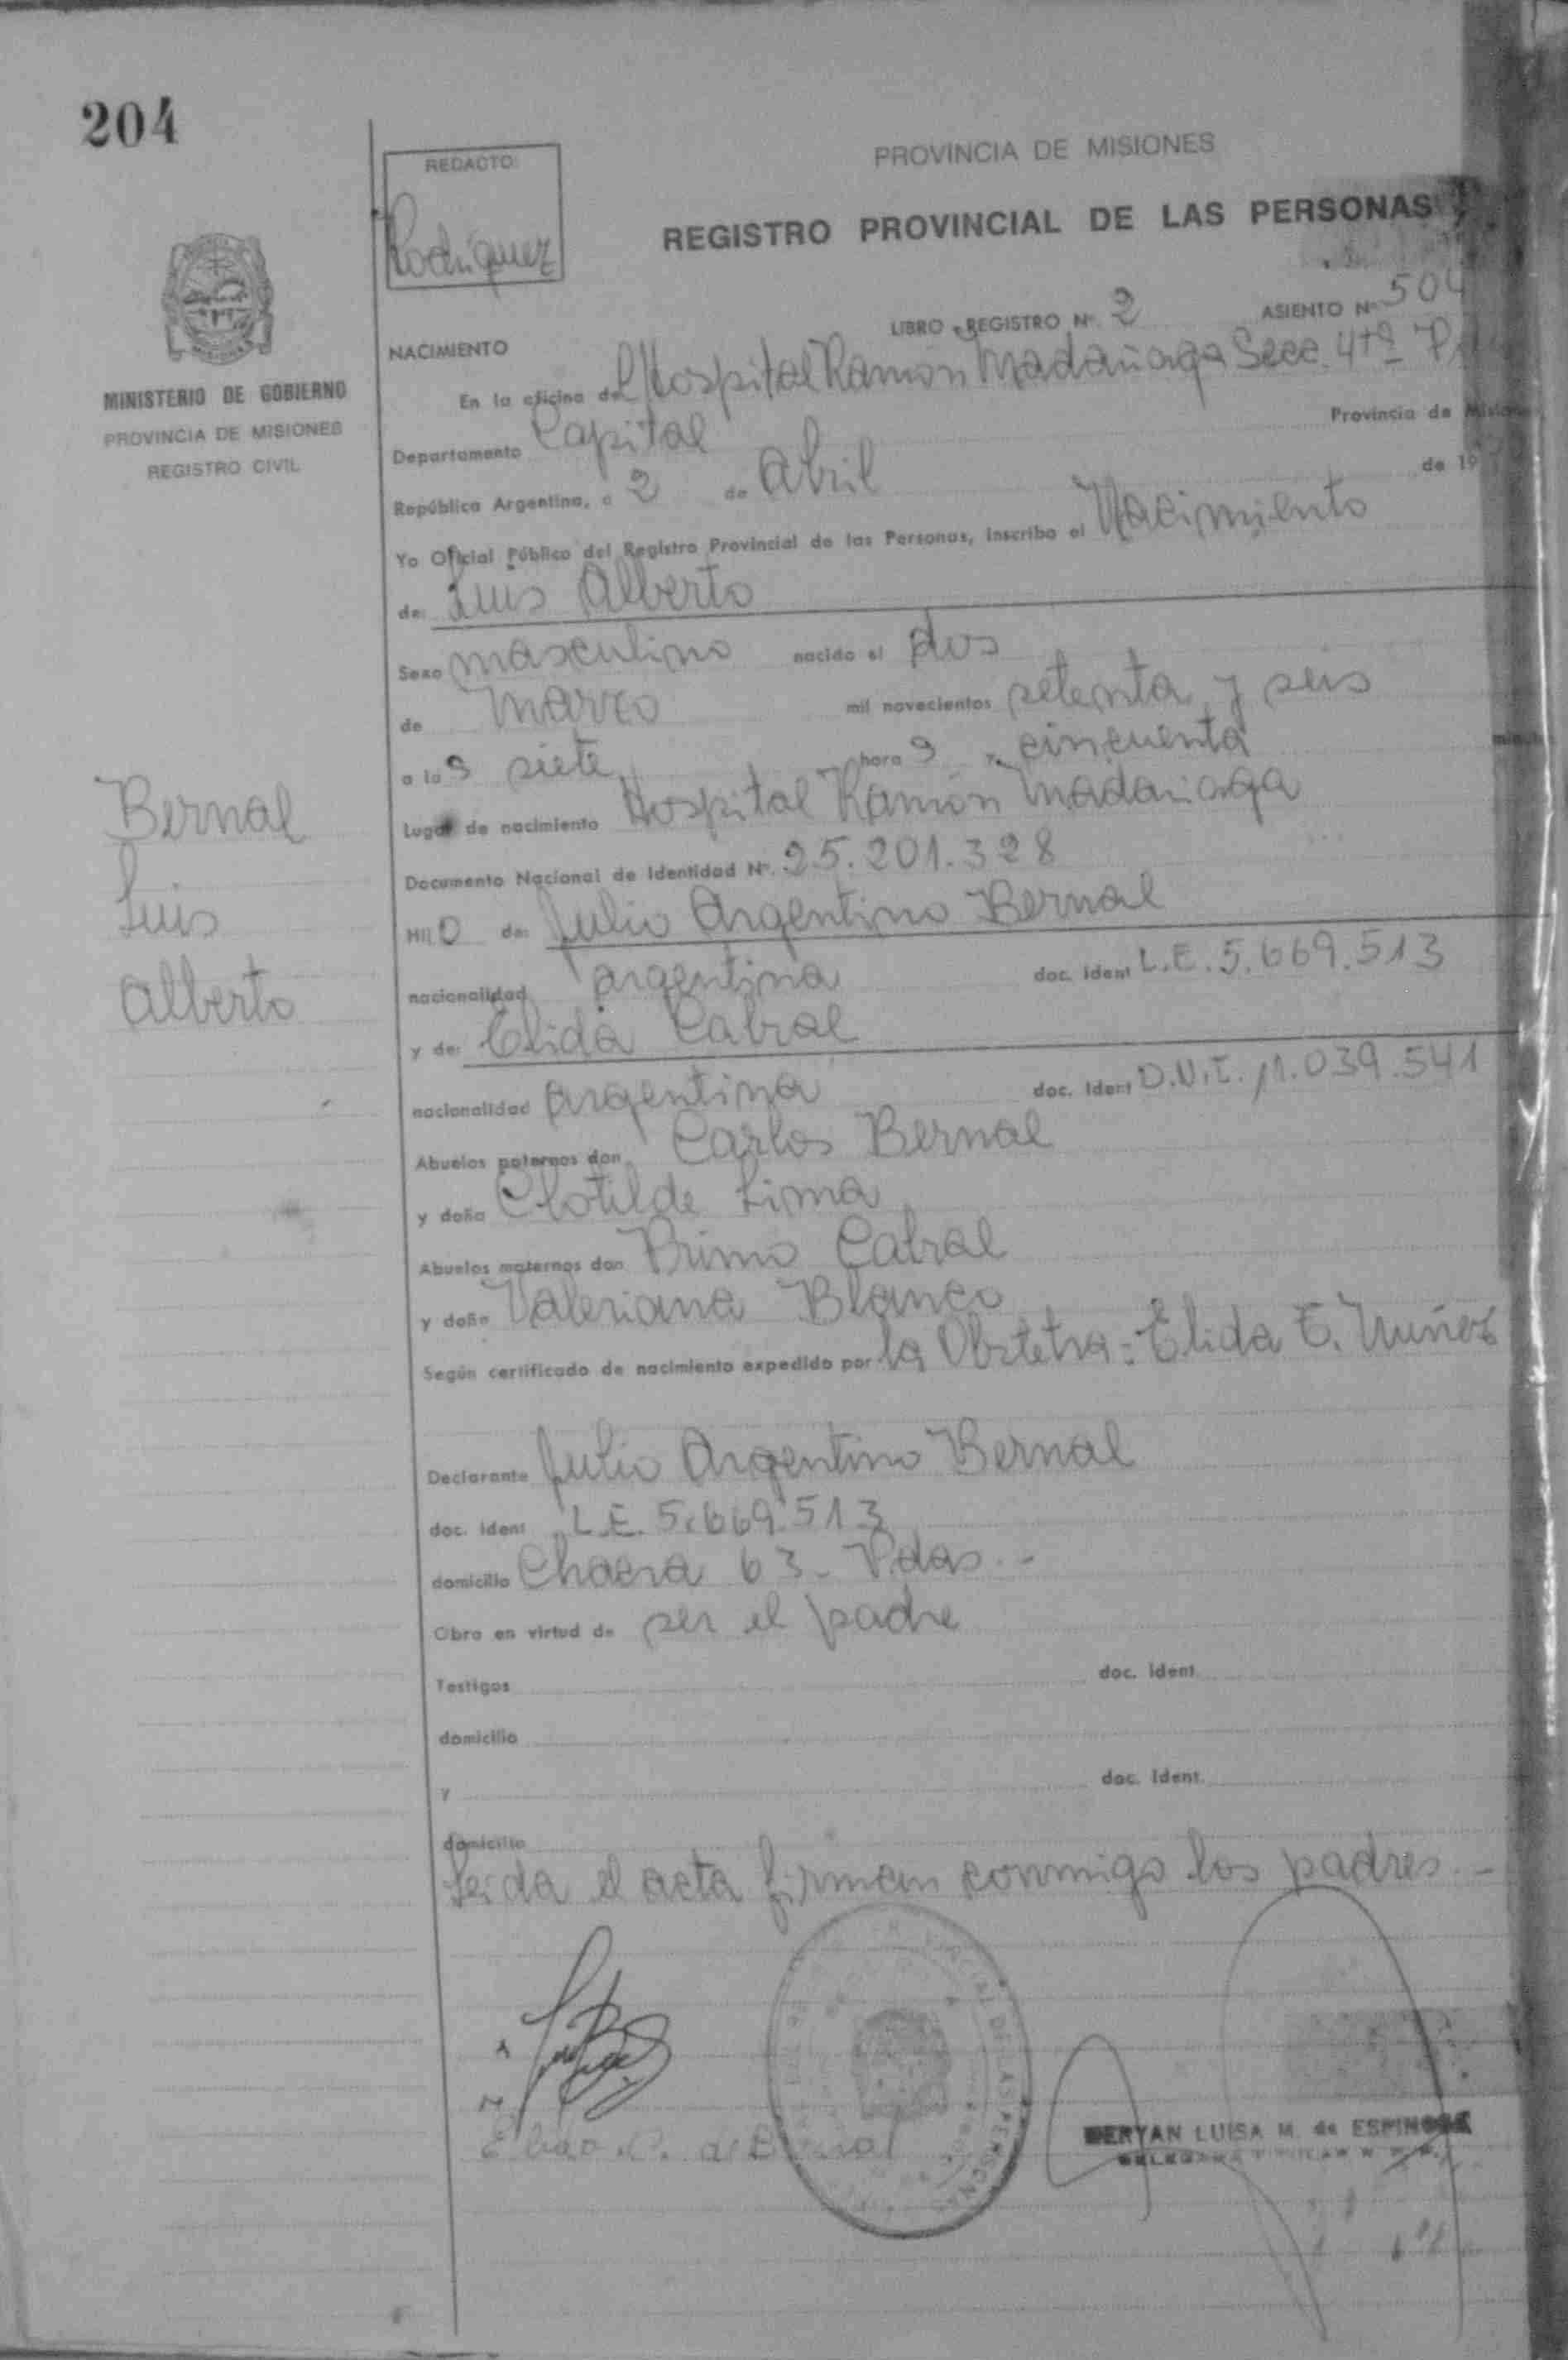 204
REDACTO:
Rodríguez
PROVINCIA DE MISIONES
REGISTRO PROVINCIAL DE LAS PERSONAS
MINISTERIO DE GOBIERNO
PROVINCIA DE MISIONES
REGISTRO CIVIL
LIBRO REGISTRO Nº. 2 ASIENTO Nº 504
NACIMIENTO
En la oficina del Hospital Ramón Madariaga Secc. 4ta
Departamento Capital Provincia de Misiones
República Argentina, a 2 de Abril de 19
Yo Oficial Público del Registro Provincial de las Personas, inscribo el Nacimiento
de: Luis Alberto
Sexo masculino nacido el dos
de Marzo mil novecientos setenta y seis
a las siete horas y cincuenta
Lugar de nacimiento Hospital Ramón Madariaga
Documento Nacional de Identidad Nº. 25.201.328
Hijo de: Julio Argentino Bernal
nacionalidad argentina doc. ident L.E. 5.669.513
y de: Elida Cabral
nacionalidad argentina doc. ident D.N.I. 11.039.541
Abuelos paternos don Carlos Bernal
y doña Clotilde Lima
Abuelos maternos don Primo Cabral
y doña Valeriana Blanco
Según certificado de nacimiento expedido por la Obstetra: Elida E. Nuñez
Declarante Julio Argentino Bernal
doc. ident L.E. 5.669.513
domicilio Chacra 63 - Pdas. -
Obra en virtud de ser el padre
Testigos doc. ident
domicilio
y doc. ident.
domicilio
Leida el acta firman conmigo los padres. -
Bernal
Luis
Alberto
LUISA M. de ESPINOSA